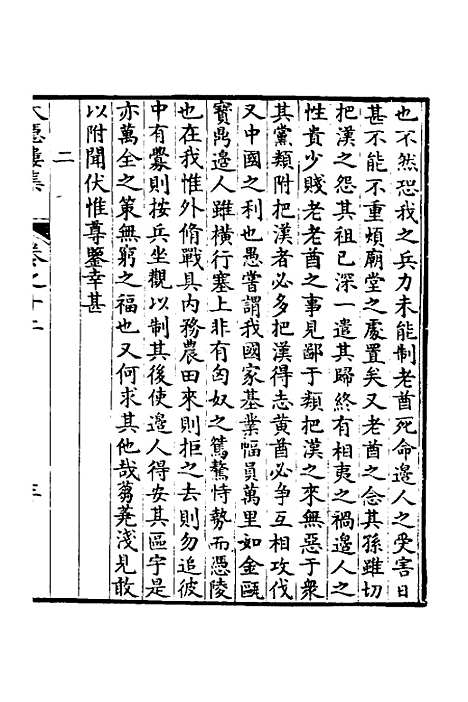 也不然恐我之兵力未能制老酋死命邊人之受害日
甚不能不重煩廟堂之處置矣又老酋之念其孫雖切
把漢之怨其祖已深一遣其歸終有相夷之禍邊人之
性貴少賤老老酋之事見鄙于類把漢之來無惡于衆
其黨類附把漢者必多把漢得志黄酋必争互相攻伐
又中國之利也愚嘗謂我國家基業幅員萬里如金甌
寳鼎邊人雖横行塞上非有匈奴之鴐鶩恃勢而憑陵
也在我惟外脩戰具内務農田來則拒之去則勿追彼
中有釁則按兵坐觀以制其後使邊人得安其區宇是
亦萬全之策無窮之福也又何求其他哉蒭蕘淺見敢
以附聞伏惟尊鑒幸甚
二
大隱樓集 卷之十二 三